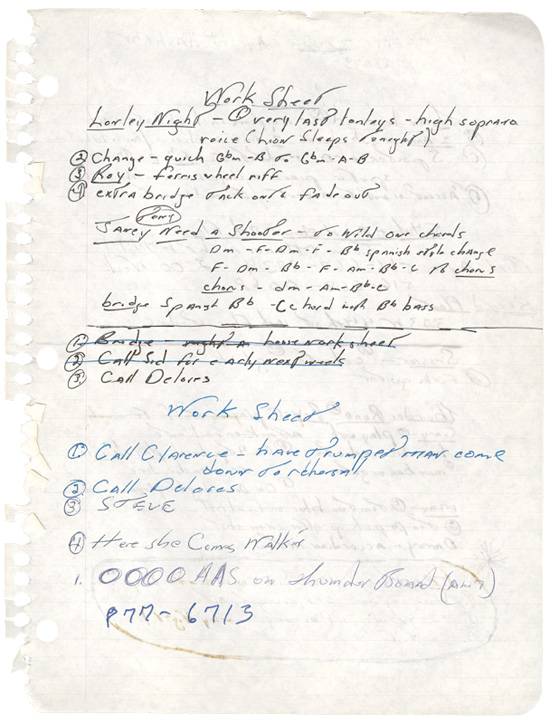 Work Sheet
Lonley Night - ① very last lonleys - high soprano
voice (Lion Sleeps Tonight)
② Change - quick Gbm - B to Gbm - A - B
③ Roy - ferris wheel riff
④ extra bridge tack onto fade out
Tony
Janey Need a Shooter - to Wild one chords
Dm - F - Dm - F - Bb spanish style change
F - Dm - Bb - F - Am - Bb - C to chorus
chorus - dm - Am - Bb - C
bridge Spanish Bb - C chord with Bb bass
① Bridge - might a house work sheet
② Call Sid for early next week
③ Call Delores
Work Sheet
① Call Clarence - have trumpet man come
down to rehersal
② Call Delores
③ STEVE
④ Here she Comes Walkin
1. OOOO AAS on Thunder Board
877-6713